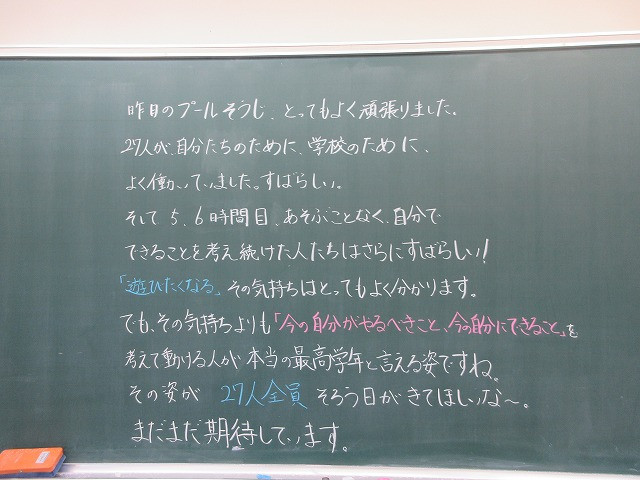 昨日のプールそうじ、とってもよく頑張りました。
27人が、自分たちのために、学校のために、
よく働いていました。すばらしい。
そして5、6時間目、あそぶことなく、自分で
できることを考え続けた人たちはさらにすばらしい!
「遊びたくなる」その気持ちはとってもよく分かります。
でも、その気持ちよりも「今の自分がやるべきこと、今の自分にできること」を
考えて動ける人が本当の最高学年と言える姿ですね。
その姿が 27人全員 そろう日がきてほしいな〜。
まだまだ期待しています。